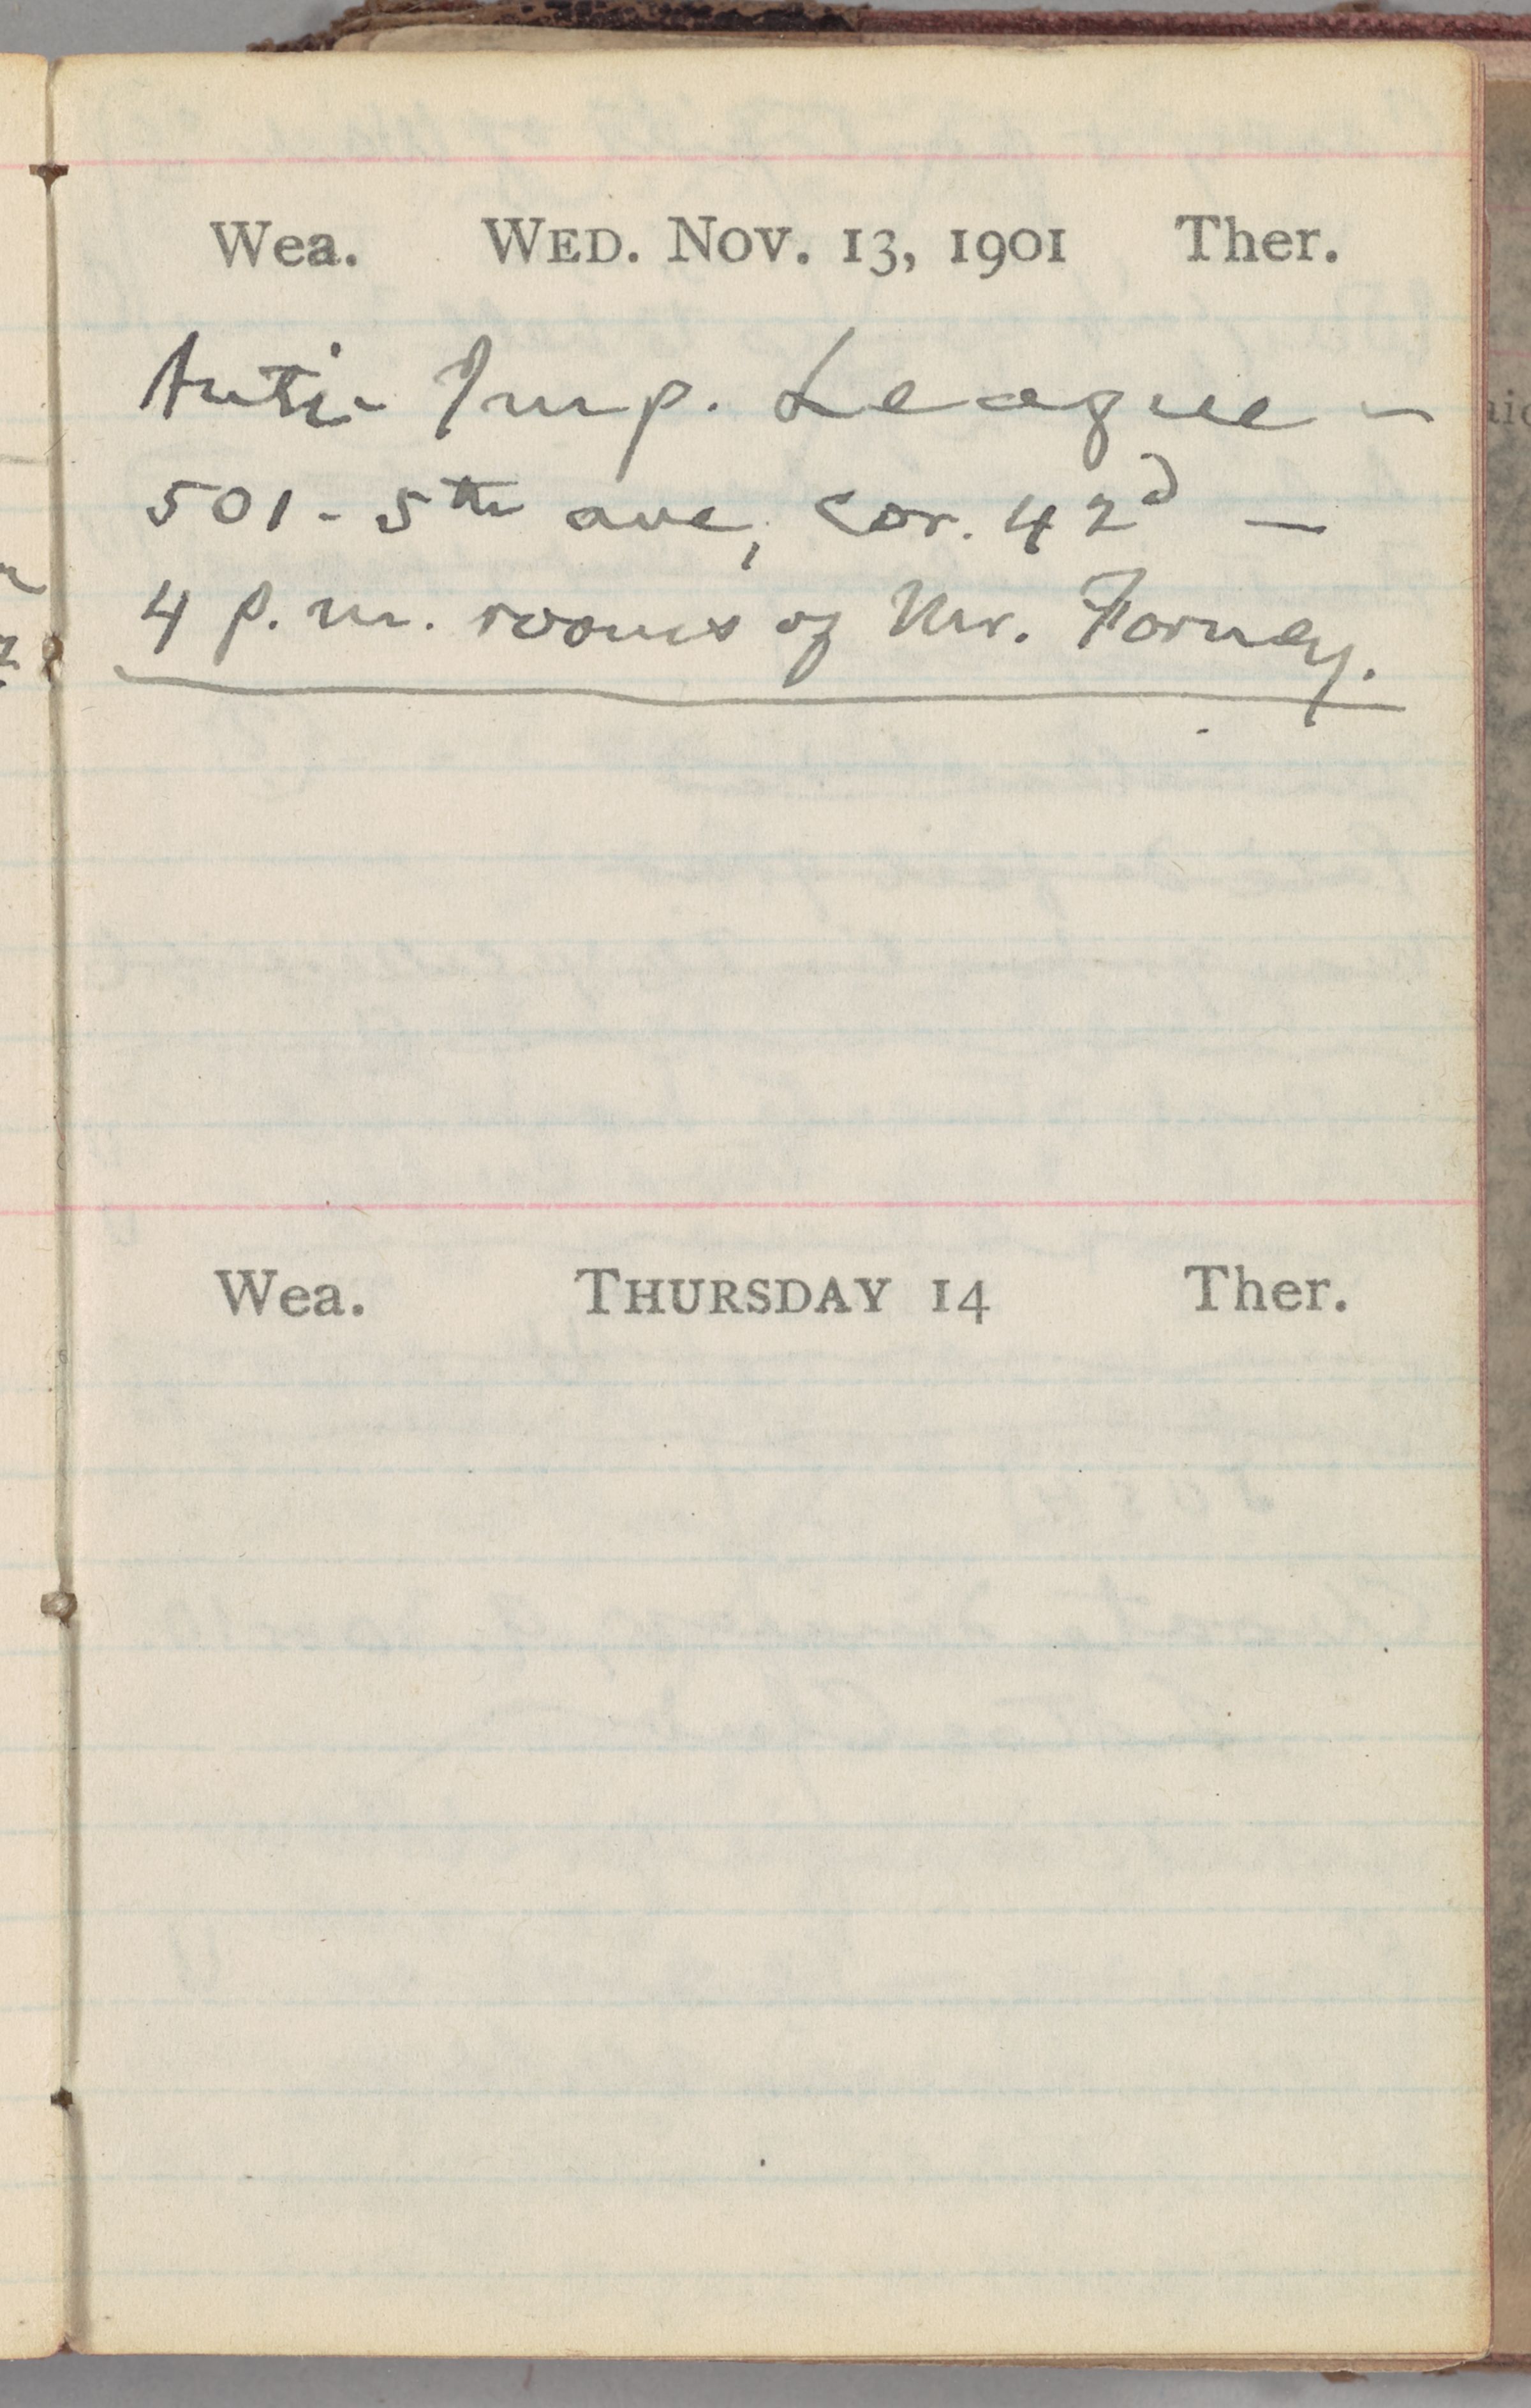 Wea. WED. NOV. 13, 1901 Ther.
Anti-Imp. League -
501 - 5th ave, cor. 42d —
4 p.m. rooms of Mr. Forney.
Wea. THURSDAY 14 Ther.